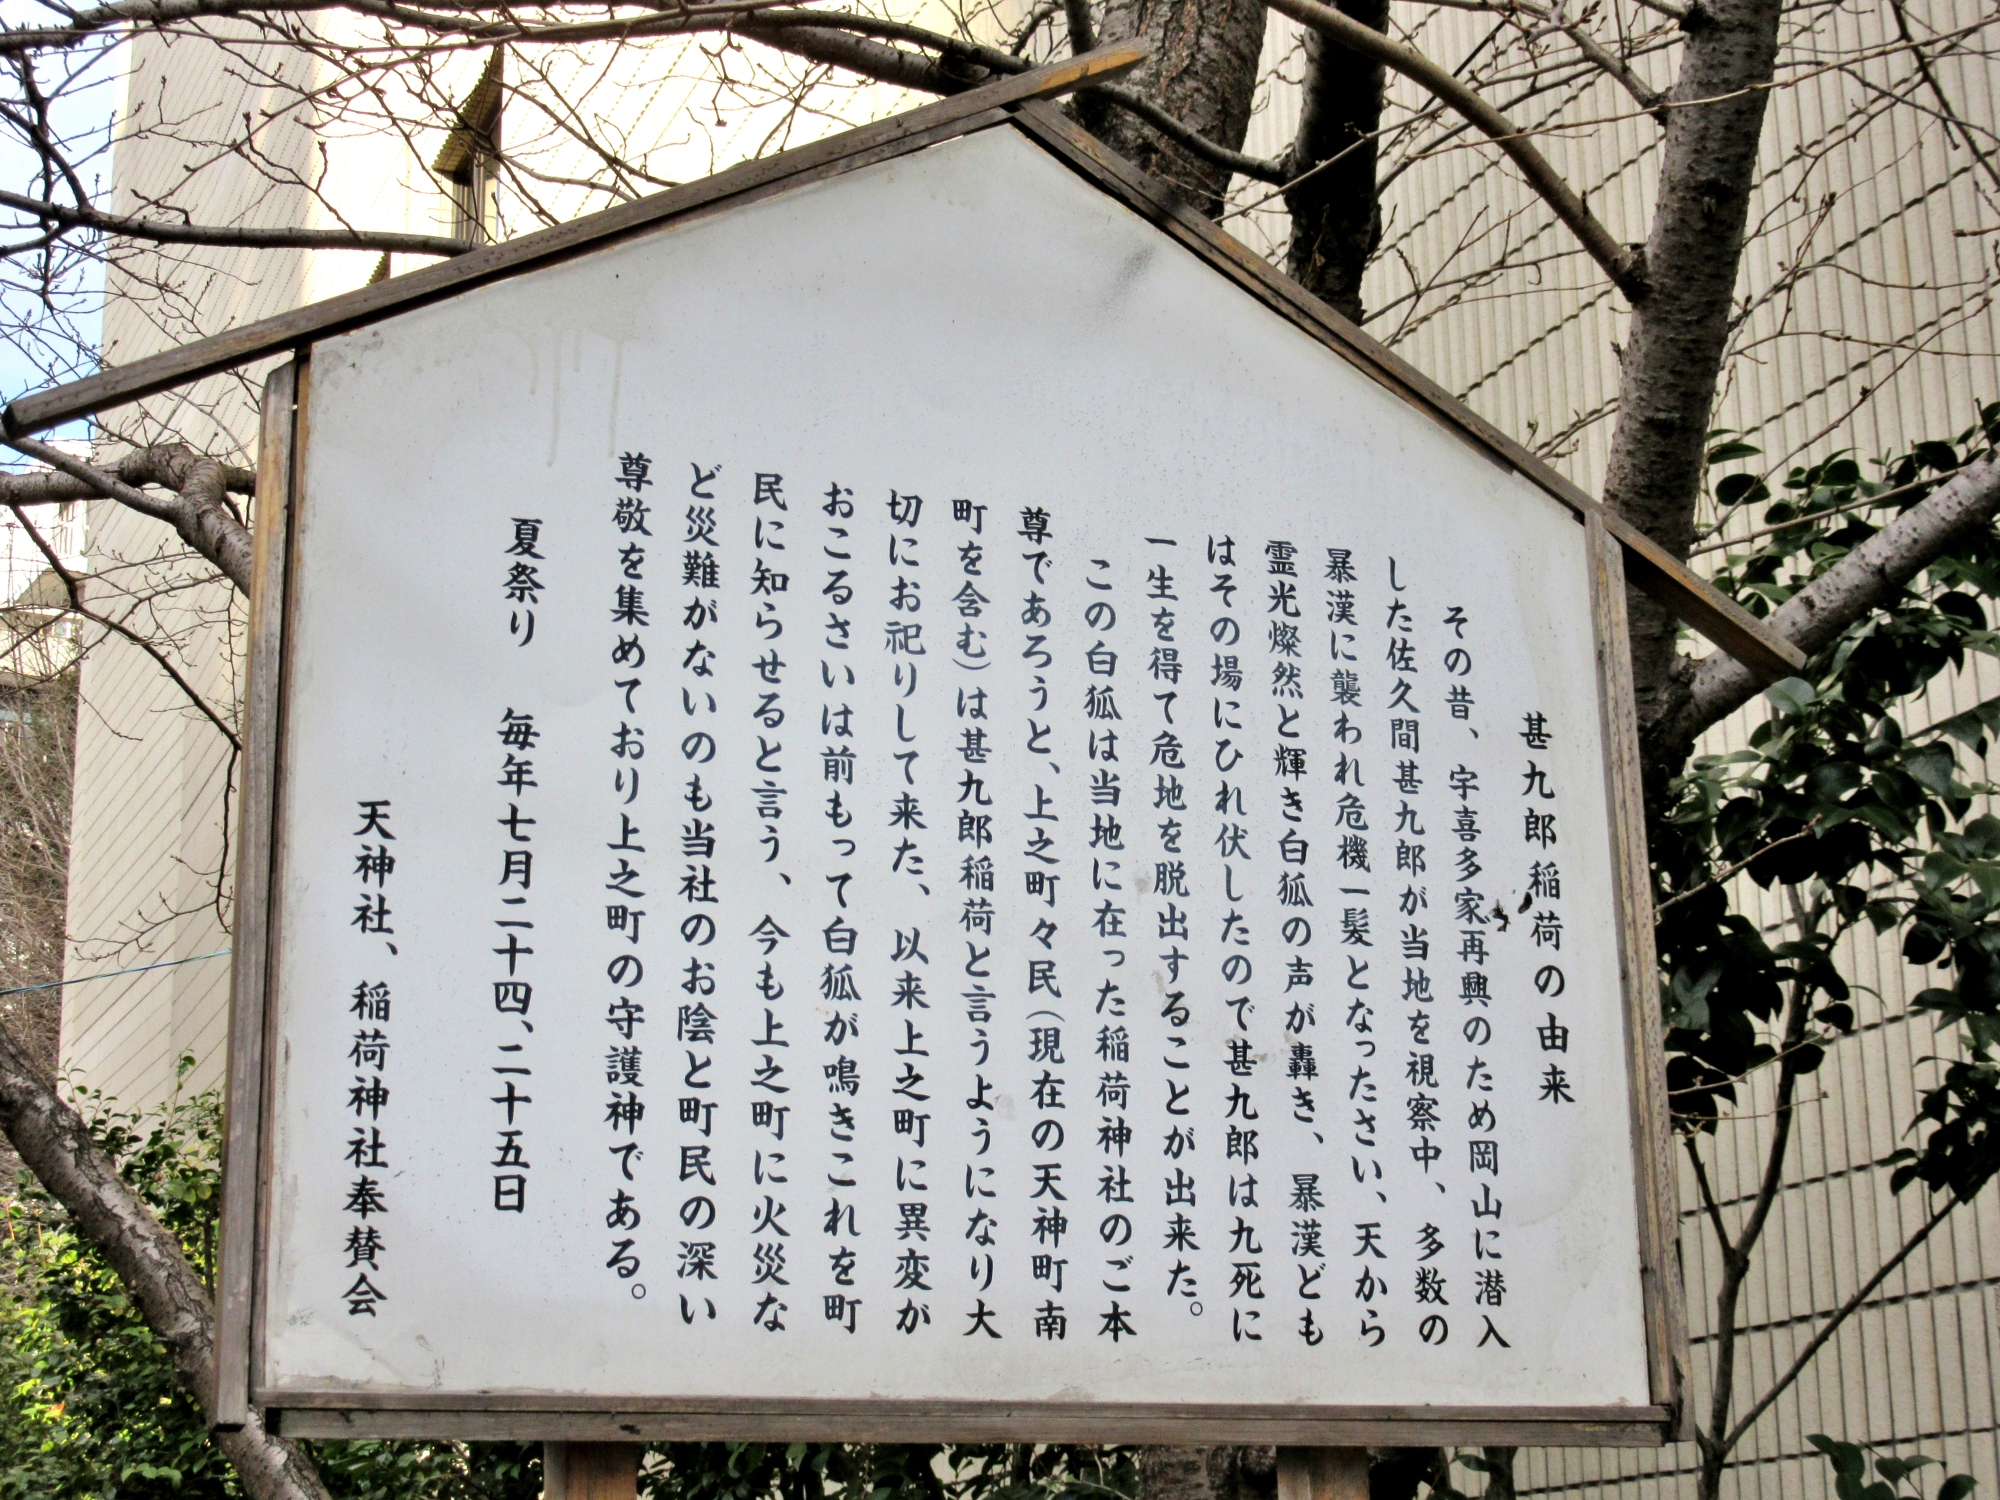 甚九郎稲荷の由来
その昔、宇喜多家再興のため岡山に潜入
した佐久間甚九郎が当地を視察中、多数の
暴漢に襲われ危機一髪となったさい、天から
霊光燦然と輝き白狐の声が轟き、暴漢ども
はその場にひれ伏したので甚九郎は九死に
一生を得て危地を脱出することが出来た。
この白狐は当地に在った稲荷神社のご本
尊であろうと、上之町々民(現在の天神町南
町を含む)は甚九郎稲荷と言うようになり大
切にお祀りして来た、以来上之町に異変が
おこるさいは前もって白狐が鳴きこれを町
民に知らせると言う、今も上之町に火災な
ど災難がないのも当社のお陰と町民の深い
尊敬を集めており上之町の守護神である。
夏祭り 毎年七月二十四、二十五日
天神社、稲荷神社奉賛会